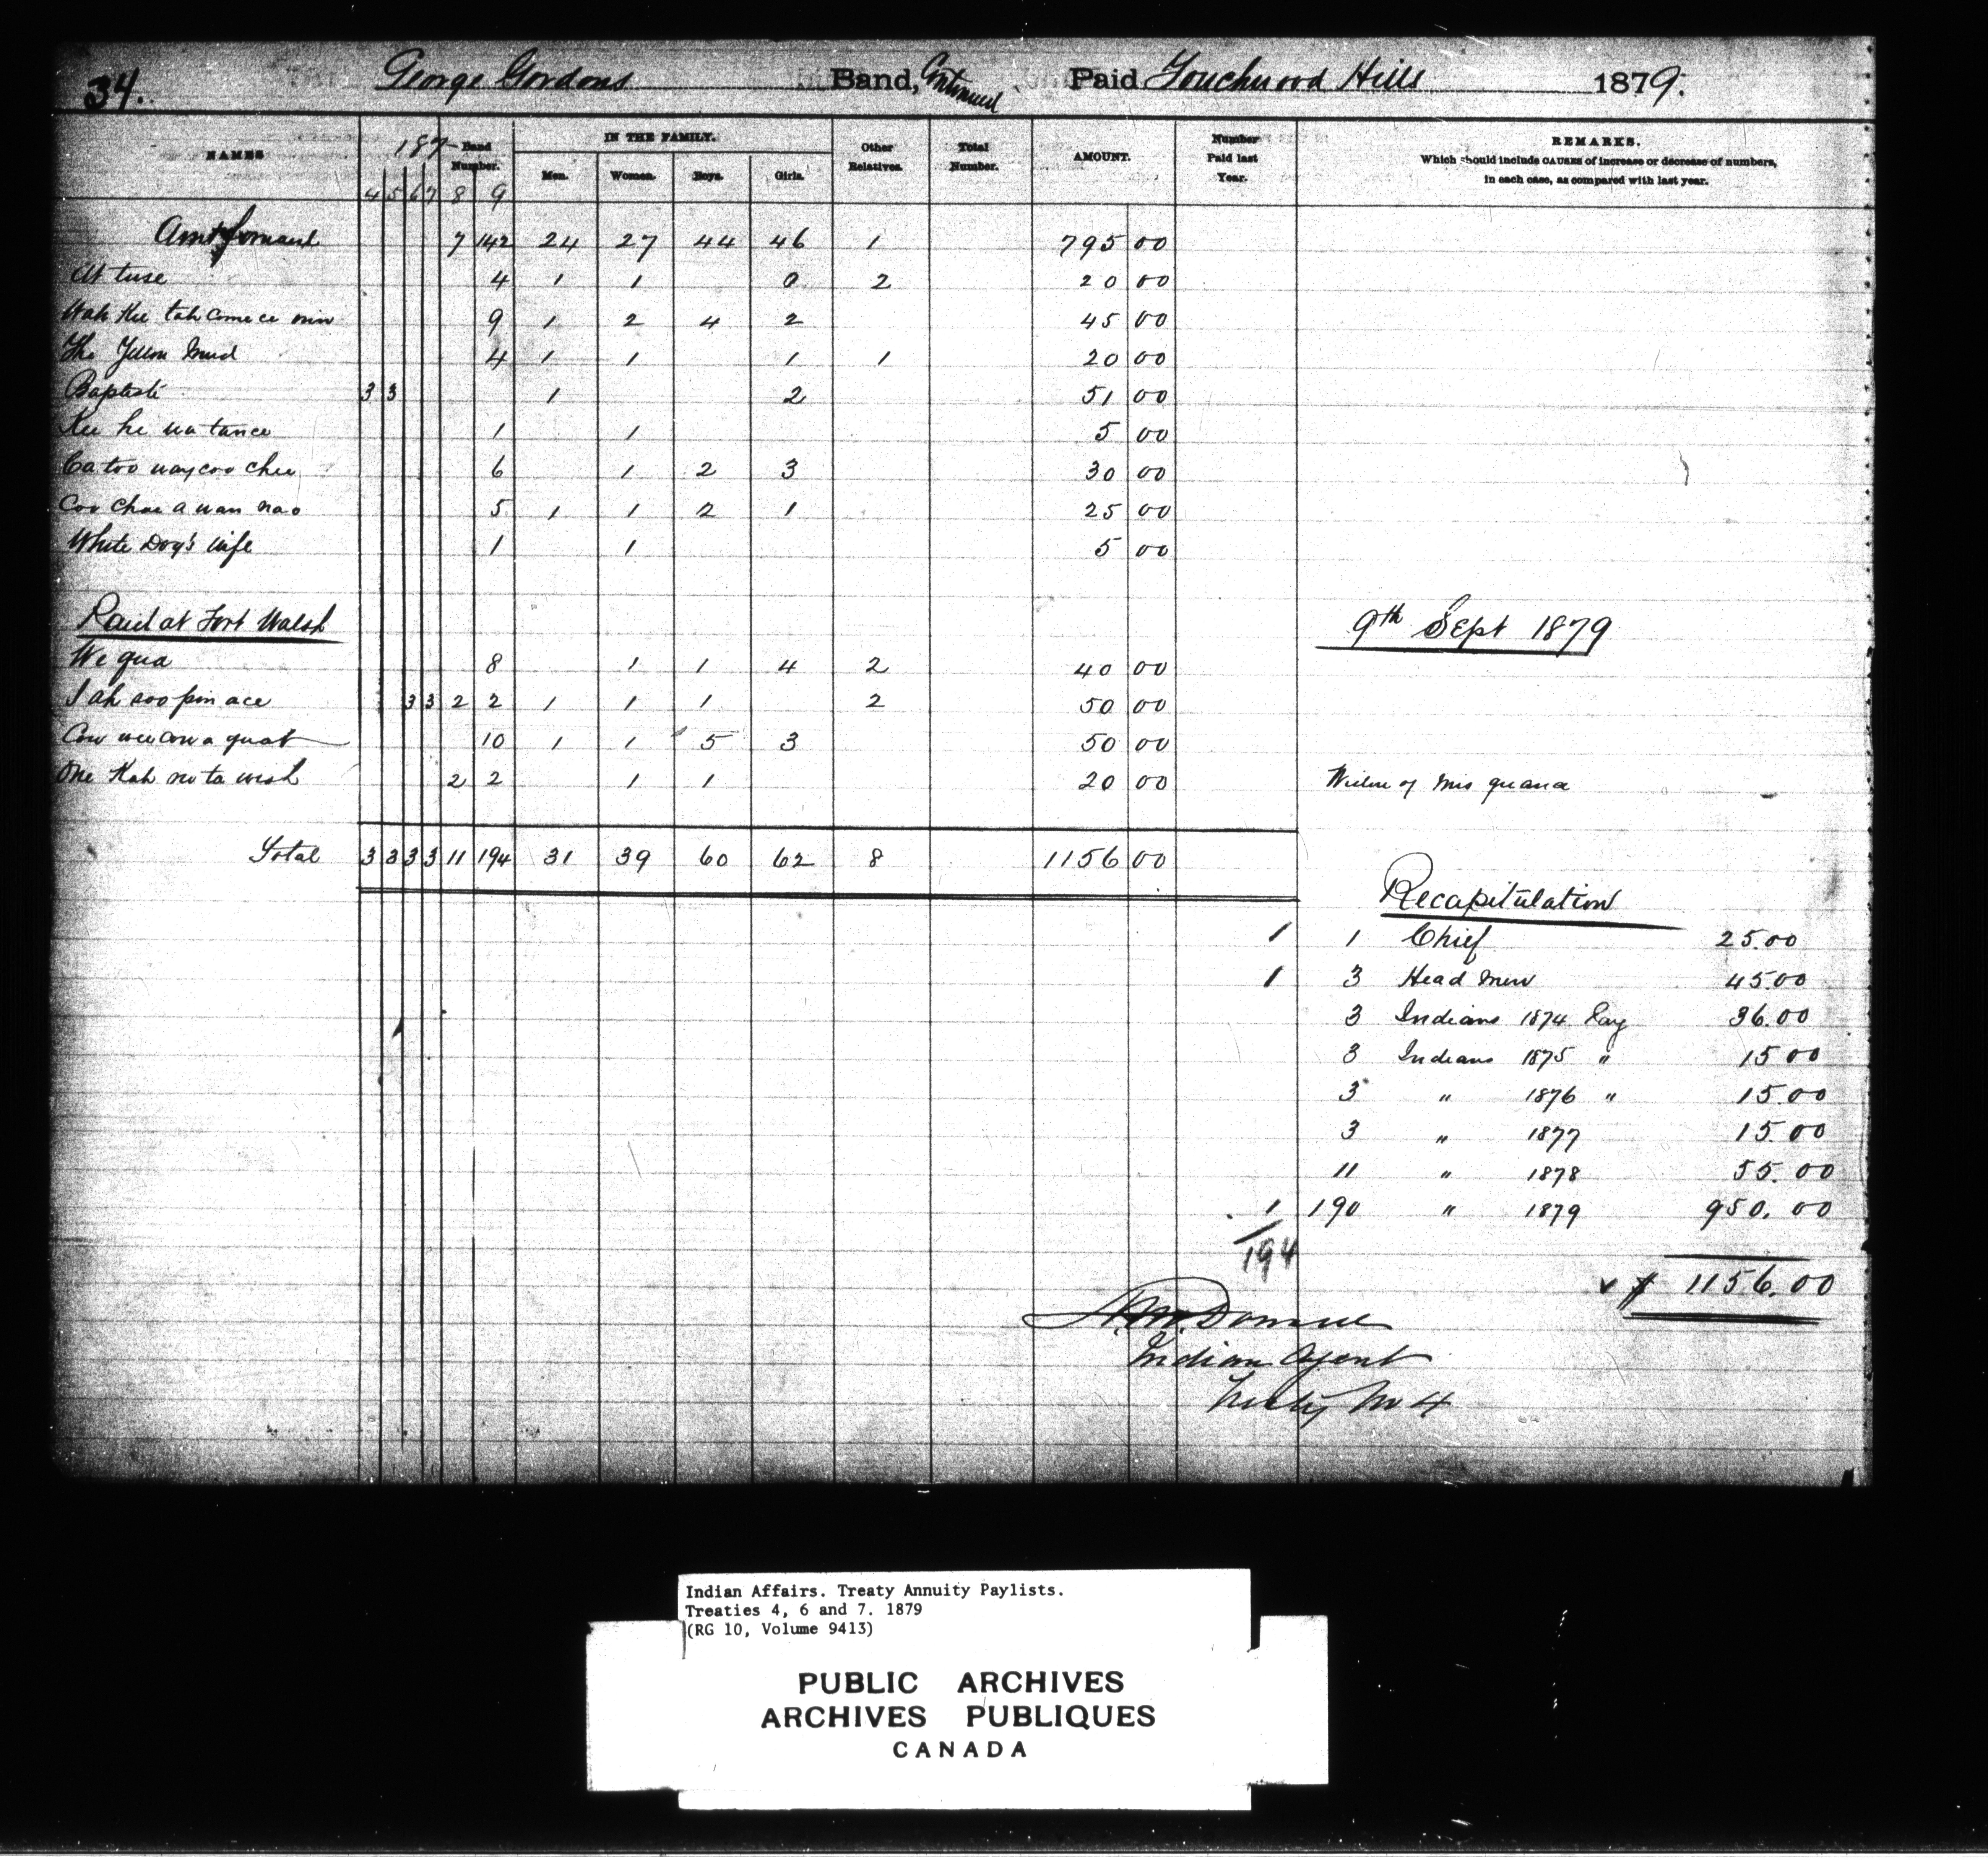 34. George Gordons Band, Continued Paid Touchwood Hills 1879.
NAMES 187- Band Number. IN THE FAMILY. Other Relatives. Total Number. AMOUNT. Number Paid last Year. REMARKS.
Which should include CAUSES of increase or decrease of numbers, in each case, as compared with last year.
4 5 6 7 8 9 Men. Women. Boys. Girls.
Amt forward 7 142 24 27 44 46 1 795 00
At tuse 4 1 1 0 2 20 00
Wah Kee tah Come ce nin 9 1 2 4 2 45 00
The Yellow Mud 4 1 1 1 1 20 00
Baptiste 3 3 1 2 51 00
Kee he wa tance 1 1 5 00
Ca too way coo chee 6 1 2 3 30 00
Coo chae a wan nao 5 1 1 2 1 25 00
White Dog's wife 1 1 5 00
Paid at Fort Walsh 9th Sept 1879
We qua 8 1 1 4 2 40 00
I ah soo pin ace 3 3 2 2 1 1 1 2 50 00
Cow wee con a quat 10 1 1 5 3 50 00
One Kah no ta wish 2 2 1 1 20 00 Widow of Mis quana
Total 3 3 3 3 11 194 31 39 60 62 8 1156 00
Recapitulation
1 1 Chief 25.00
1 3 Head Men 45.00
3 Indians 1874 Pay 36.00
3 Indians 1875 " 15 00
3 " 1876 " 15.00
3 " 1877 15.00
11 " 1878 55.00
1 190 " 1879 950.00
194
$ 1156.00
Indian Agent
Treaty No 4
Indian Affairs. Treaty Annuity Paylists.
Treaties 4, 6 and 7. 1879
(RG 10, Volume 9413)
PUBLIC ARCHIVES
ARCHIVES PUBLIQUES
CANADA